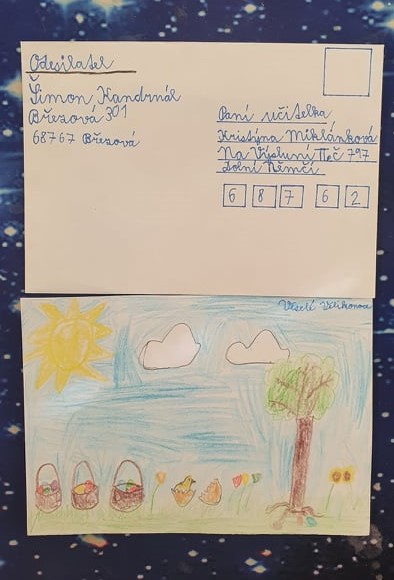 Odesílatel
Šimon Kandrnál
Březová 301
68767 Březová
Paní učitelka
Kristýna Miklánková
Na Výsluní Meč 797
Dolní Němčí
6 8 7 6 2
Veselé Velikonoce